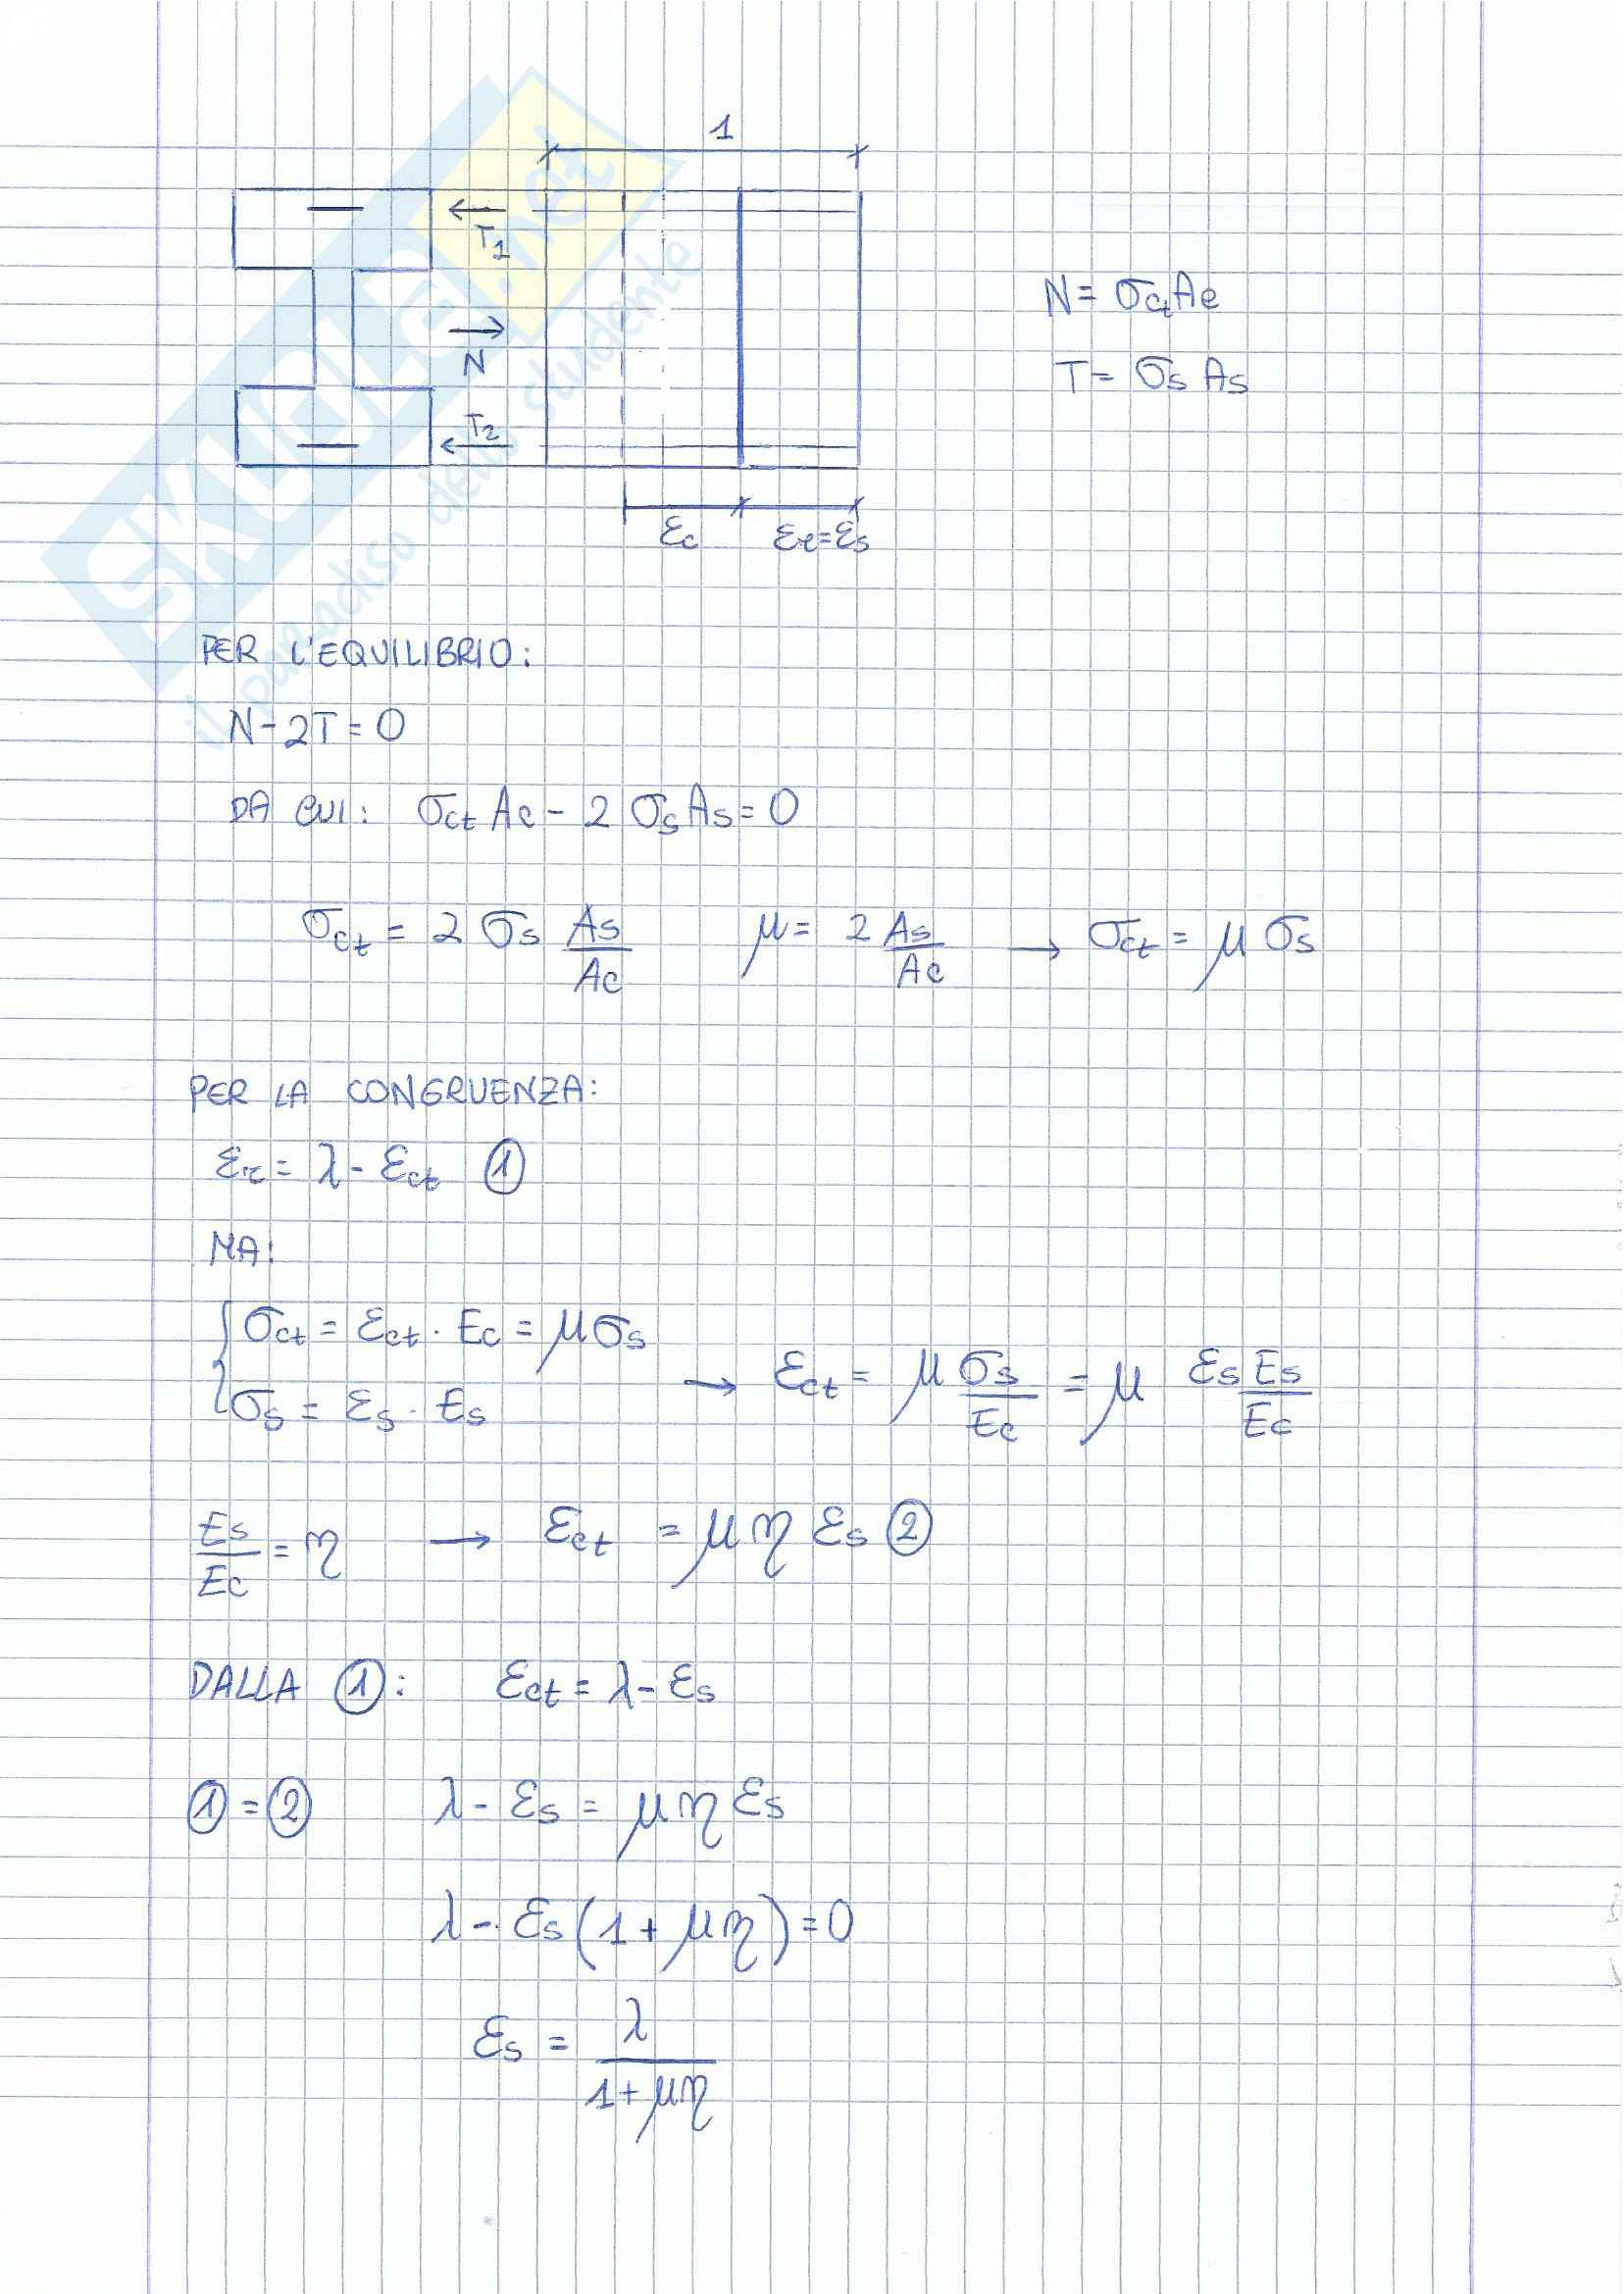 1
T₁
N
T₂
εc
εr=εs
N= σct Ac
T= σs As
SKUOLA.net
il paradiso dello studente
PER L'EQUILIBRIO:
N-2T=0
DA CUI: σct Ac - 2 σs As=0
σct = 2 σs As/Ac μ= 2 As/Ac → σct= μ σs
PER LA CONGRUENZA:
εr= λ- εct ①
MA:
{σct = εct · Ec = μσs
σs = εs · Es → εct= μ σs/Ec = μ εs Es/Ec
Es/Ec = η → εct = μ η εs ②
DALLA ①: εct= λ- εs
①=② λ- εs = μ η εs
λ- εs(1+ μη)=0
εs = λ/1+μη